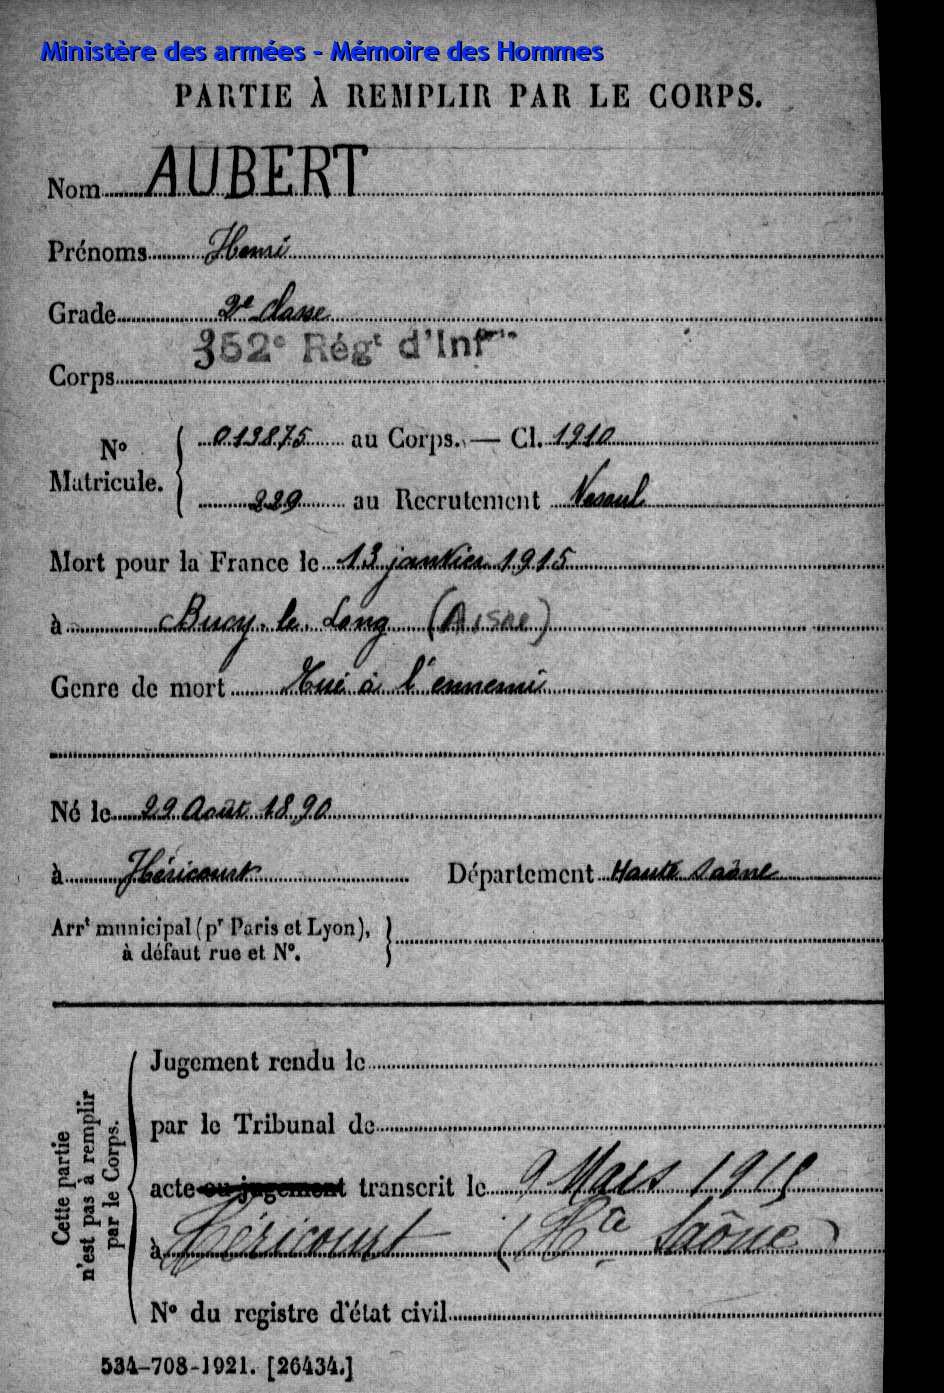 Ministère des armées - Mémoire des Hommes
PARTIE À REMPLIR PAR LE CORPS.
Nom AUBERT
Prénoms Henri
Grade 2e classe
Corps 352e Régt d'Infrie
No Matricule. { 013875 au Corps. — Cl. 1910
229 au Recrutement Vesoul
Mort pour la France le 13 janvier 1915
à Bucy-le-Long (Aisne)
Genre de mort Tué à l'ennemi
Né le 29 Août 1890
à Héricourt Département Haute Saône
Arrt municipal (pr Paris et Lyon), }
à défaut rue et No.
Cette partie
n'est pas à remplir
par le Corps.
Jugement rendu le
par le Tribunal de
acte ou jugement transcrit le 9 Mars 1915
à Héricourt (Hte Saône)
No du registre d'état civil
534-708-1921. [26434.]